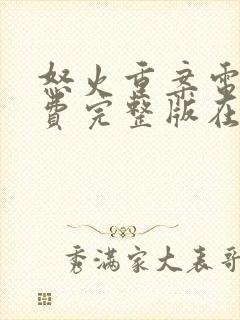 怒火重案电
费完整版在
秀满家大表哥